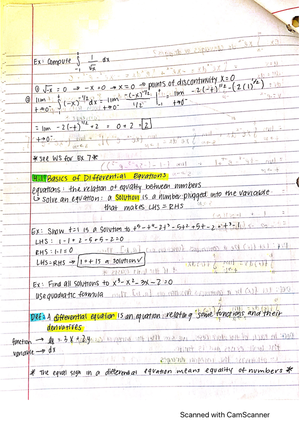 Ex: Compute ∫₋₁⁰ 1/√-x dx
@ √-x = 0 → -x = 0 → x = 0 → points of discontinuity x = 0
lim t→0⁻ ∫₋₁ᵗ (-x)^-1/2 dx = lim t→0⁻ -(-x)^1/2 / 1/2 |₋₁ᵗ = lim t→0⁻ -2(-t)^1/2 - (-2(1)^1/2)
= lim t→0⁻ -2(-t)^1/2 + 2 = 0 + 2 = 2
*see WS for Ex 7*
Basics of Differential Equations
equations: the relation of equality between numbers
↳ Solve an equation: a solution is a number plugged into the variable
that makes LHS = RHS
Ex: Show t=1 is a solution to
RHS: 1-1 = 0
LHS = RHS → t=1 is a solution ✓
Ex: Find all solutions to x³-x²-3x-7=0
use quadratic formula
DEF: A differential equation is an equation relating some functions and their
derivatives
function →
variable → dx
* The equal sign in a differential equation means equality of numbers *
Scanned with CamScanner